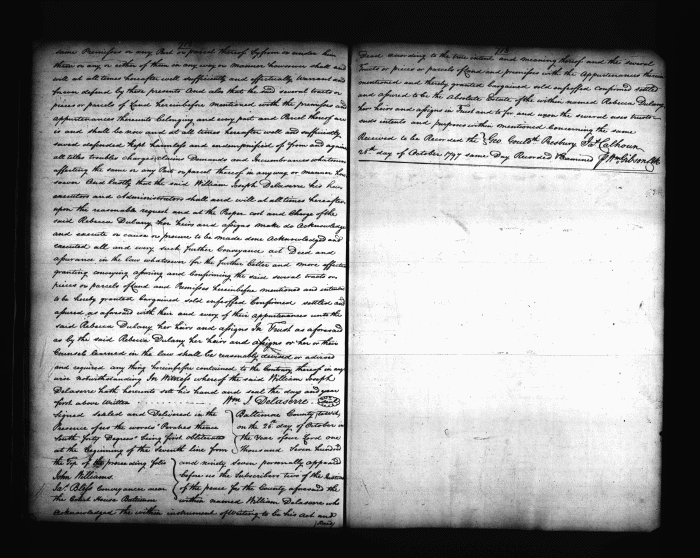 same Premisses or any Part or parcel thereof by from or under him
them or any or either of them in any way or manner howsoever shall and
will at all times hereafter well sufficiently and effectually Warrant and
forever defend by these presents And also that the said several tracts or
pieces or parcels of Land hereinbefore mentioned with the premises and
appurtenances thereunto belonging and every part and Parcel thereof are
is and shall be now and at all times hereafter well and sufficiently
saved defended kept harmless and indemnified of from and against
all titles troubles charges claims Demands and Incumbrances whatsoever
affecting the same or any Part or parcel thereof in any way or manner how
soever And lastly that the said William Joseph Delasere his heirs
executors and Administrators shall and will at all times hereafter
upon the reasonable request and at the Proper cost and Charge of the
said Rebecca Dulany her heirs and assigns make do Acknowledge
and execute or cause or procure to be made done Acknowledged and
executed all and every such further Conveyance act Deed and
assurance in the law whatsoever for the further better and more effectual
granting conveying assuring and Confirming the said several tracts or
pieces or parcels of Land and Premisses hereinbefore mentioned and intended
to be hereby granted bargained sold enfeoffed Confirmed settled and
assured as aforesaid with their and every of their Appurtenances unto the
said Rebecca Dulany her heirs and assigns In Trust as aforesaid
as by the said Rebecca Dulany her heirs and assigns or her or their
Counsel learned in the law shall be reasonably devised or advised
and required any thing hereinbefore contained to the Contrary thereof in any
wise notwithstanding In Witness whereof the said William Joseph
Delaserre hath hereunto set his hand and seal the day and year
first above Written Wm J. Delaserre
Signed sealed and Delivered in the
Presence of us the words Perches thence
South forty Degrees being first obliterated
at the beginning of the seventh line from
the Top of the preceeding folio
John Williams
Jas. Bless Conveyancer near
the Court House Baltimore
Baltimore County to wit,
on the 26th day of October in
the Year of our Lord one
thousand Seven hundred
and ninety seven personally appeared
before us the Subscribers two of the Justices
of the peace for the County aforesaid the
within named William Delaserre who
Acknowledged the within instrument of Writing to be his Act and
Deed
113
Deed according to the true intent and meaning thereof and the several
Tracts or pieces or parcels of Land and premises with the Appurtenances therein
mentioned and thereby granted bargained sold enfeoffed confirmed settled
and assured to be the Absolute Estate of the within named Rebecca Dulany
her heirs and assigns in Trust and to for and upon the several uses trusts
ends intents and purposes within mentioned concerning the same
Received to be Recorded the Geo. Gouldh. Presbury Jas. Calhoun
28th day of October 1797 same Day Recorded & Examined Wm Gibson Clk